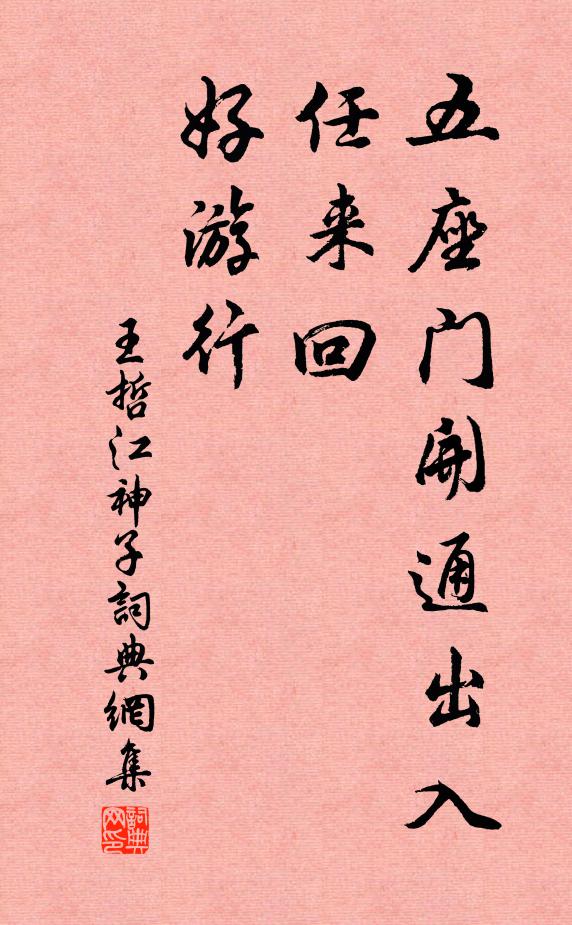 五座门開通出入
任来回
好游行
王哲江神子詞典網集
詞典网印